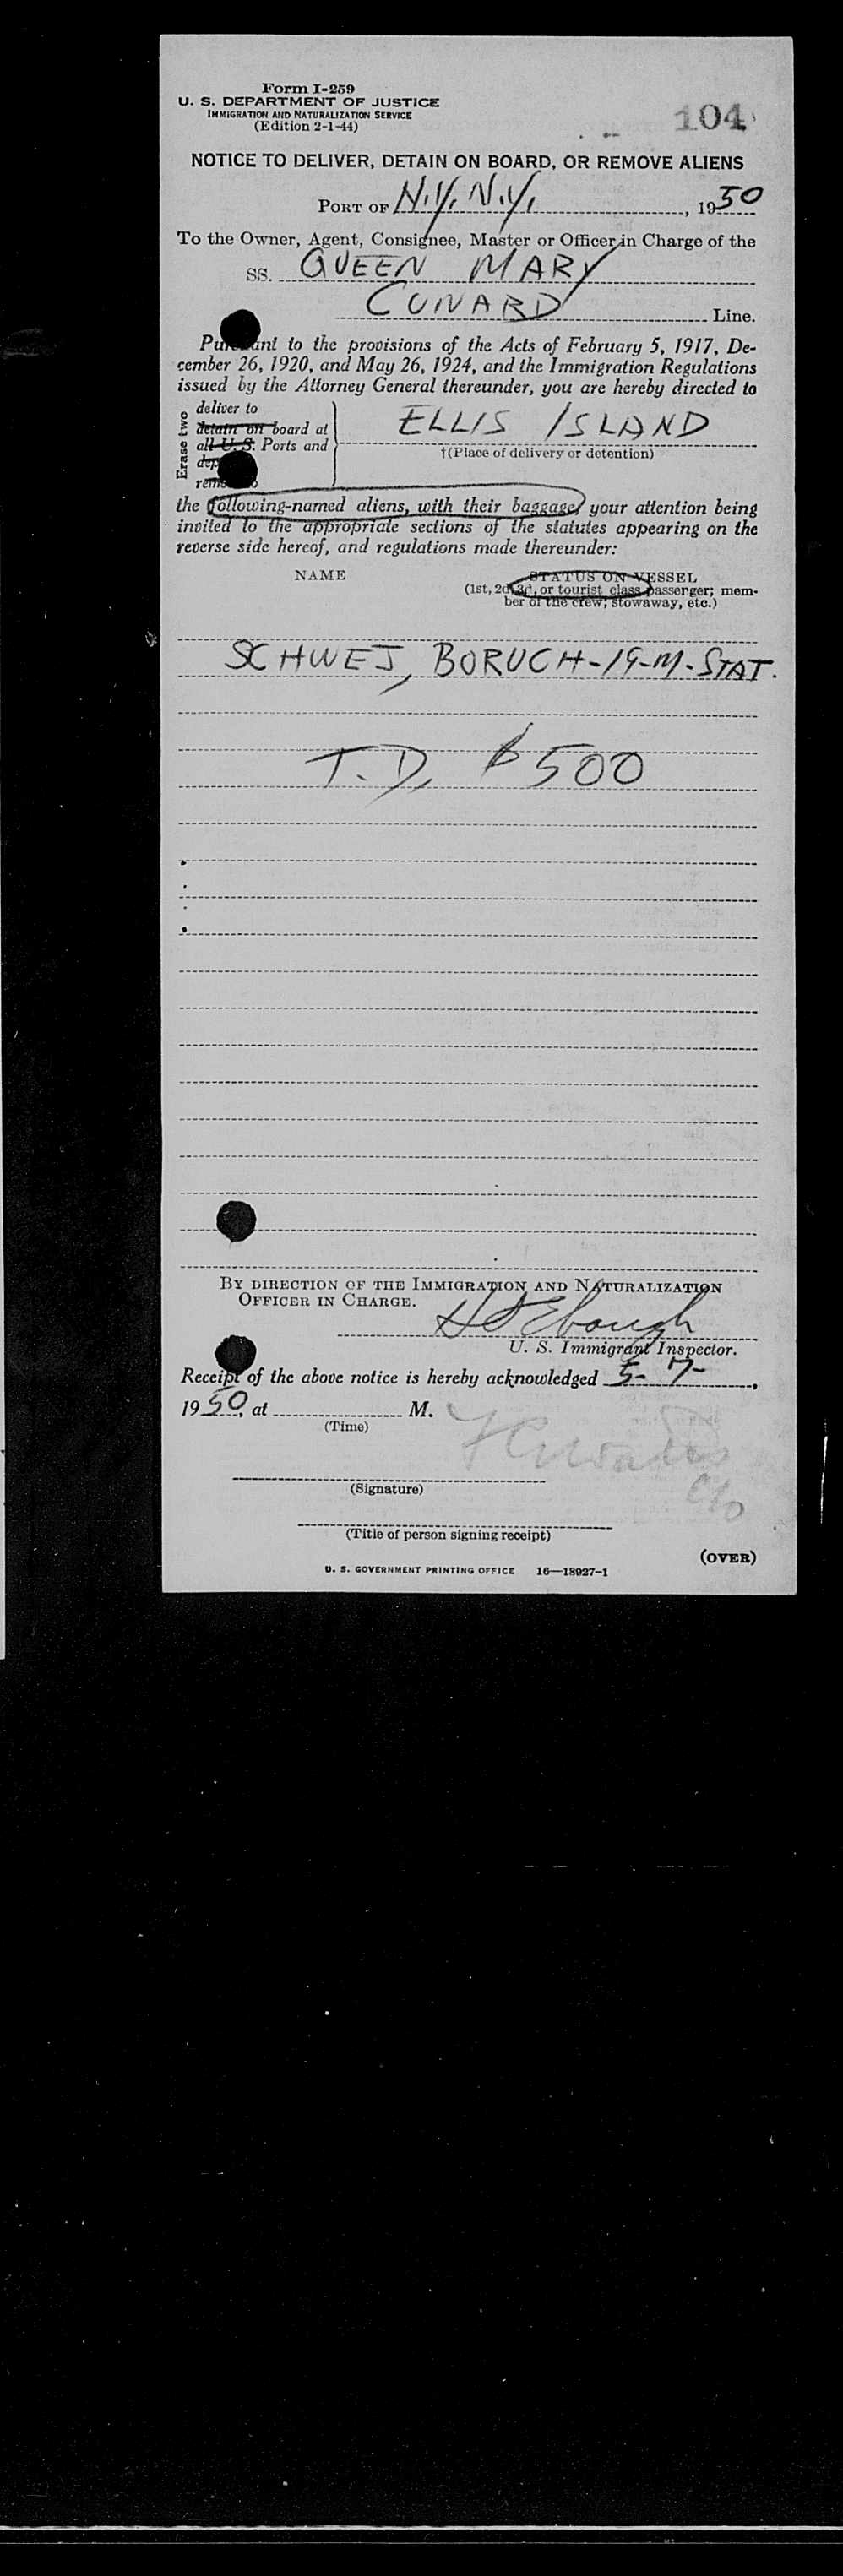 Form I-259
U. S. DEPARTMENT OF JUSTICE
IMMIGRATION AND NATURALIZATION SERVICE
(Edition 2-1-44)
104
NOTICE TO DELIVER, DETAIN ON BOARD, OR REMOVE ALIENS
PORT OF N.Y. N.Y., 1950
To the Owner, Agent, Consignee, Master or Officer in Charge of the
SS. QUEEN MARY
CUNARD Line.
Pursuant to the provisions of the Acts of February 5, 1917, De-
cember 26, 1920, and May 26, 1924, and the Immigration Regulations
issued by the Attorney General thereunder, you are hereby directed to
Erase two
deliver to
detain on board at
all U. S. Ports and
ELLIS ISLAND
†(Place of delivery or detention)
the following-named aliens, with their baggage, your attention being
invited to the appropriate sections of the statutes appearing on the
reverse side hereof, and regulations made thereunder:
NAME
STATUS ON VESSEL
(1st, 2d, 3d, or tourist class passerger; mem-
ber of the crew; stowaway, etc.)
SCHWEJ, BORUCH-19-M-STAT.
T.D. $500
BY DIRECTION OF THE IMMIGRATION AND NATURALIZATION
OFFICER IN CHARGE.
U. S. Immigrant Inspector.
Receipt of the above notice is hereby acknowledged 5-7-,
1950, at M.
(Time)
(Signature)
(Title of person signing receipt)
(OVER)
U. S. GOVERNMENT PRINTING OFFICE 16—18927-1